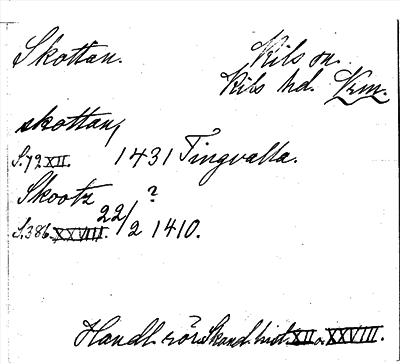 Skottan. Kils sn.
Kils hd. Vrm.
skottan,
S. 72 XII. 1431 Tingvalla.
Skootz ?
S. 386. XXVIII. 22/2 1410.
Handl. rör. Skand. hist. XII o. XXVIII.